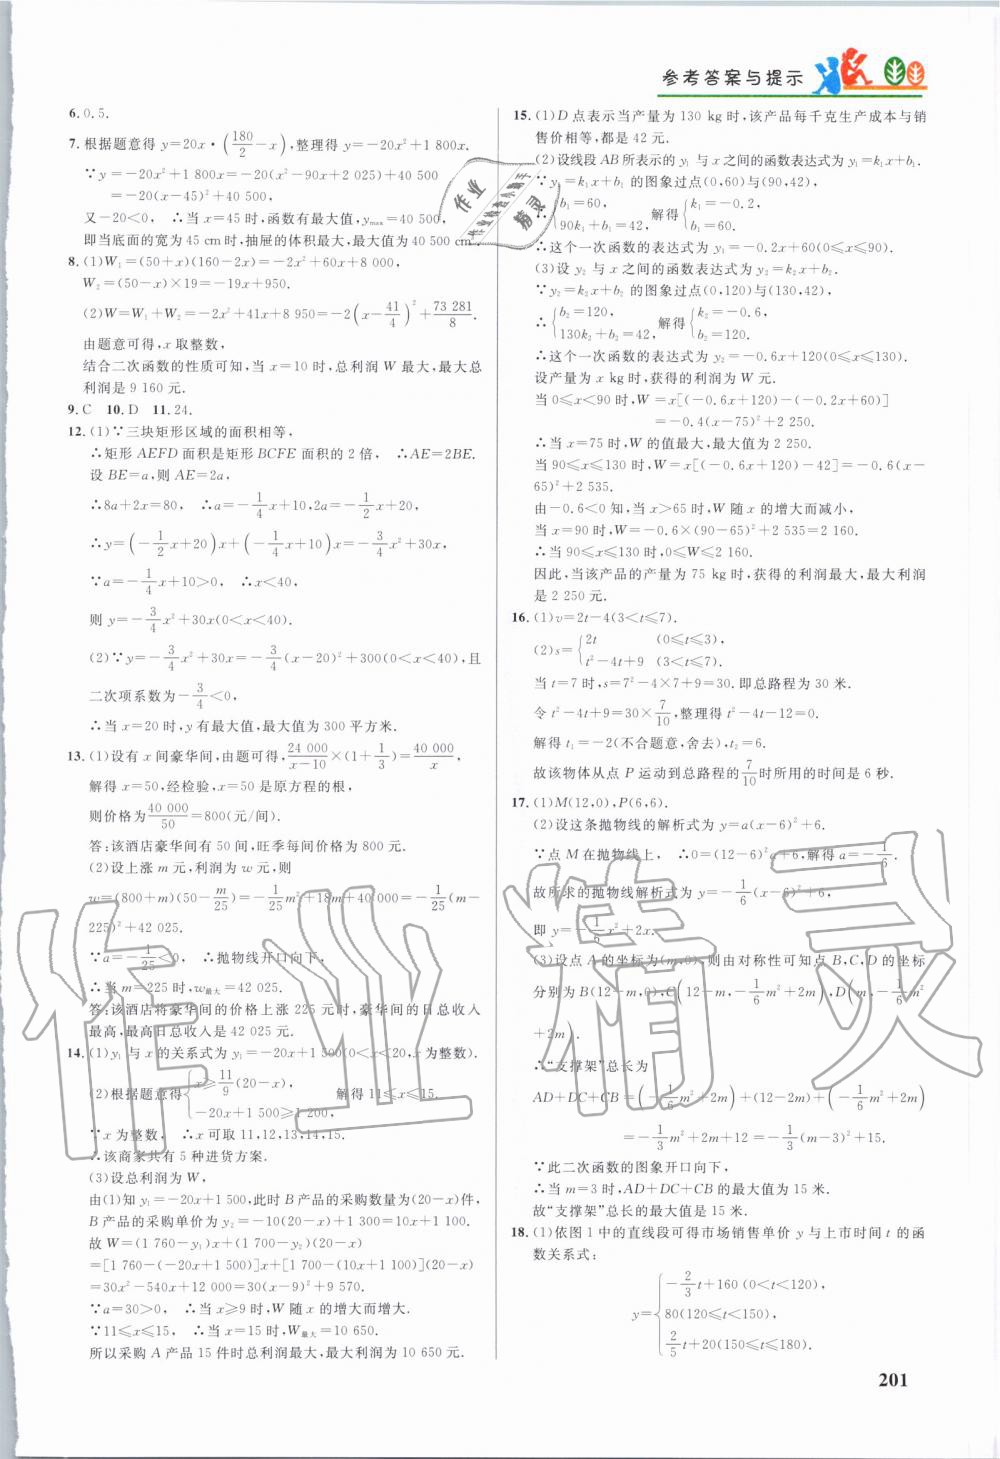 参考答案与提示
6. 0.5.
7. 根据题意得 y=20x·(180/2-x),整理得 y=-20x²+1 800x.
∵y=-20x²+1 800x=-20(x²-90x+2 025)+40 500
=-20(x-45)²+40 500,
又-20<0, ∴当 x=45 时,函数有最大值,y_max=40 500,
即当底面的宽为 45 cm 时,抽屉的体积最大,最大值为 40 500 cm
8. (1)W₁=(50+x)(160-2x)=-2x²+60x+8 000,
W₂=(50-x)×19=-19x+950.
(2)W=W₁+W₂=-2x²+41x+8 950=-2(x-41/4)²+73 281/8.
由题意可得,x 取整数,
结合二次函数的性质可知,当 x=10 时,总利润 W 最大,最大总
利润是 9 160 元.
9. C 10. D 11. 24.
12. (1)∵三块矩形区域的面积相等,
∴矩形 AEFD 面积是矩形 BCFE 面积的 2 倍, ∴AE=2BE.
设 BE=a,则 AE=2a,
∴8a+2x=80, ∴a=-1/4x+10,2a=-1/2x+20,
∴y=(-1/2x+20)x+(-1/4x+10)x=-3/4x²+30x,
∵a=-1/4x+10>0, ∴x<40,
则 y=-3/4x²+30x(0<x<40).
(2)∵y=-3/4x²+30x=-3/4(x-20)²+300(0<x<40),且
二次项系数为-3/4<0,
∴当 x=20 时,y 有最大值,最大值为 300 平方米.
13. (1)设有 x 间豪华间,由题可得,24 000/(x-10)×(1+1/3)=40 000/x,
解得 x=50,经检验,x=50 是原方程的根,
则价格为40 000/50=800(元/间).
答:该酒店豪华间有 50 间,旺季每间价格为 800 元.
(2)设上涨 m 元,利润为 w 元,则
w=(800+m)(50-m/25)=-1/25m²+18m+40 000=-1/25(m-
225)²+42 025.
∵a=-1/25<0, ∴抛物线开口向下,
∴当 m=225 时,w最大=42 025.
答:该酒店将豪华间的价格上涨 225 元时,豪华间的日总收入
最高,最高日总收入是 42 025 元.
14. (1)y₁ 与 x 的关系式为 y₁=-20x+1 500(0<x<20,x 为整数).
(2)根据题意得{x≥11/9(20-x), -20x+1 500≥1 200, 解得 11≤x≤15.
∵x 为整数, ∴x 可取 11,12,13,14,15.
∴该商家共有 5 种进货方案.
(3)设总利润为 W,
由(1)知 y₁=-20x+1 500,此时 B 产品的采购数量为(20-x)件,
B 产品的采购单价为 y₂=-10(20-x)+1 300=10x+1 100.
故 W=(1 760-y₁)x+(1 700-y₂)(20-x)
=[1 760-(-20x+1 500)]x+[1 700-(10x+1 100)](20-x)
=30x²-540x+12 000=30(x-9)²+9 570.
∵a=30>0, ∴当 x≥9 时,W 随 x 的增大而增大.
∵11≤x≤15, ∴当 x=15 时,W最大=10 650.
所以采购 A 产品 15 件时总利润最大,最大利润为 10 650 元.
15. (1)D 点表示当产量为 130 kg 时,该产品每千克生产成本与销
售价相等,都是 42 元.
(2)设线段 AB 所表示的 y₁ 与 x 之间的函数表达式为 y₁=k₁x+b₁.
∵y₁=k₁x+b₁ 的图象过点(0,60)与(90,42),
∴{b₁=60, 90k₁+b₁=42, 解得{k₁=-0.2, b₁=60.
∴这个一次函数的表达式为 y₁=-0.2x+60(0≤x≤90).
(3)设 y₂ 与 x 之间的函数表达式为 y₂=k₂x+b₂.
∵y₂=k₂x+b₂ 的图象过点(0,120)与(130,42),
∴{b₂=120, 130k₂+b₂=42, 解得{k₂=-0.6, b₂=120.
∴这个一次函数的表达式为 y₂=-0.6x+120(0≤x≤130).
设产量为 x kg 时,获得的利润为 W 元.
当 0≤x<90 时,W=x[(-0.6x+120)-(-0.2x+60)]
=-0.4(x-75)²+2 250.
∴当 x=75 时,W 的值最大,最大值为 2 250.
当 90≤x≤130 时,W=x[(-0.6x+120)-42]=-0.6(x-
65)²+2 535.
由-0.6<0 知,当 x>65 时,W 随 x 的增大而减小,
当 x=90 时,W=-0.6×(90-65)²+2 535=2 160.
∴当 90≤x≤130 时,0≤W≤2 160.
因此,当该产品的产量为 75 kg 时,获得的利润最大,最大利润
是 2 250 元.
16. (1)v=2t-4(3<t≤7).
(2)s={2t (0≤t≤3), t²-4t+9 (3<t≤7).
当 t=7 时,s=7²-4×7+9=30.即总路程为 30 米.
令 t²-4t+9=30×7/10,整理得 t²-4t-12=0.
解得 t₁=-2(不合题意,舍去),t₂=6.
故该物体从点 P 运动到总路程的7/10时所用的时间是 6 秒.
17. (1)M(12,0),P(6,6).
(2)设这条抛物线的解析式为 y=a(x-6)²+6.
∵点 M 在抛物线上, ∴0=(12-6)²a+6,解得 a=-1/6.
故所求的抛物线解析式为 y=-1/6(x-6)²+6,
即 y=-1/6x²+2x.
(3)设点 A 的坐标为(m,0),则由对称性可知点 B,C,D 的坐标
分别为 B(12-m,0),C(12-m,-1/6m²+2m),D(m,-1/6m²
+2m).
∴“支撑架”总长为
AD+DC+CB=(-1/6m²+2m)+(12-2m)+(-1/6m²+2m)
=-1/3m²+2m+12=-1/3(m-3)²+15.
∵此二次函数的图象开口向下,
∴当 m=3 时,AD+DC+CB 的最大值为 15 米.
故“支撑架”总长的最大值是 15 米.
18. (1)依图 1 中的直线段可得市场销售单价 y 与上市时间 t 的函
数关系式:
y={-2/3t+160 (0<t<120),
80(120≤t<150),
2/5t+20(150≤t≤180).
201
作业精灵